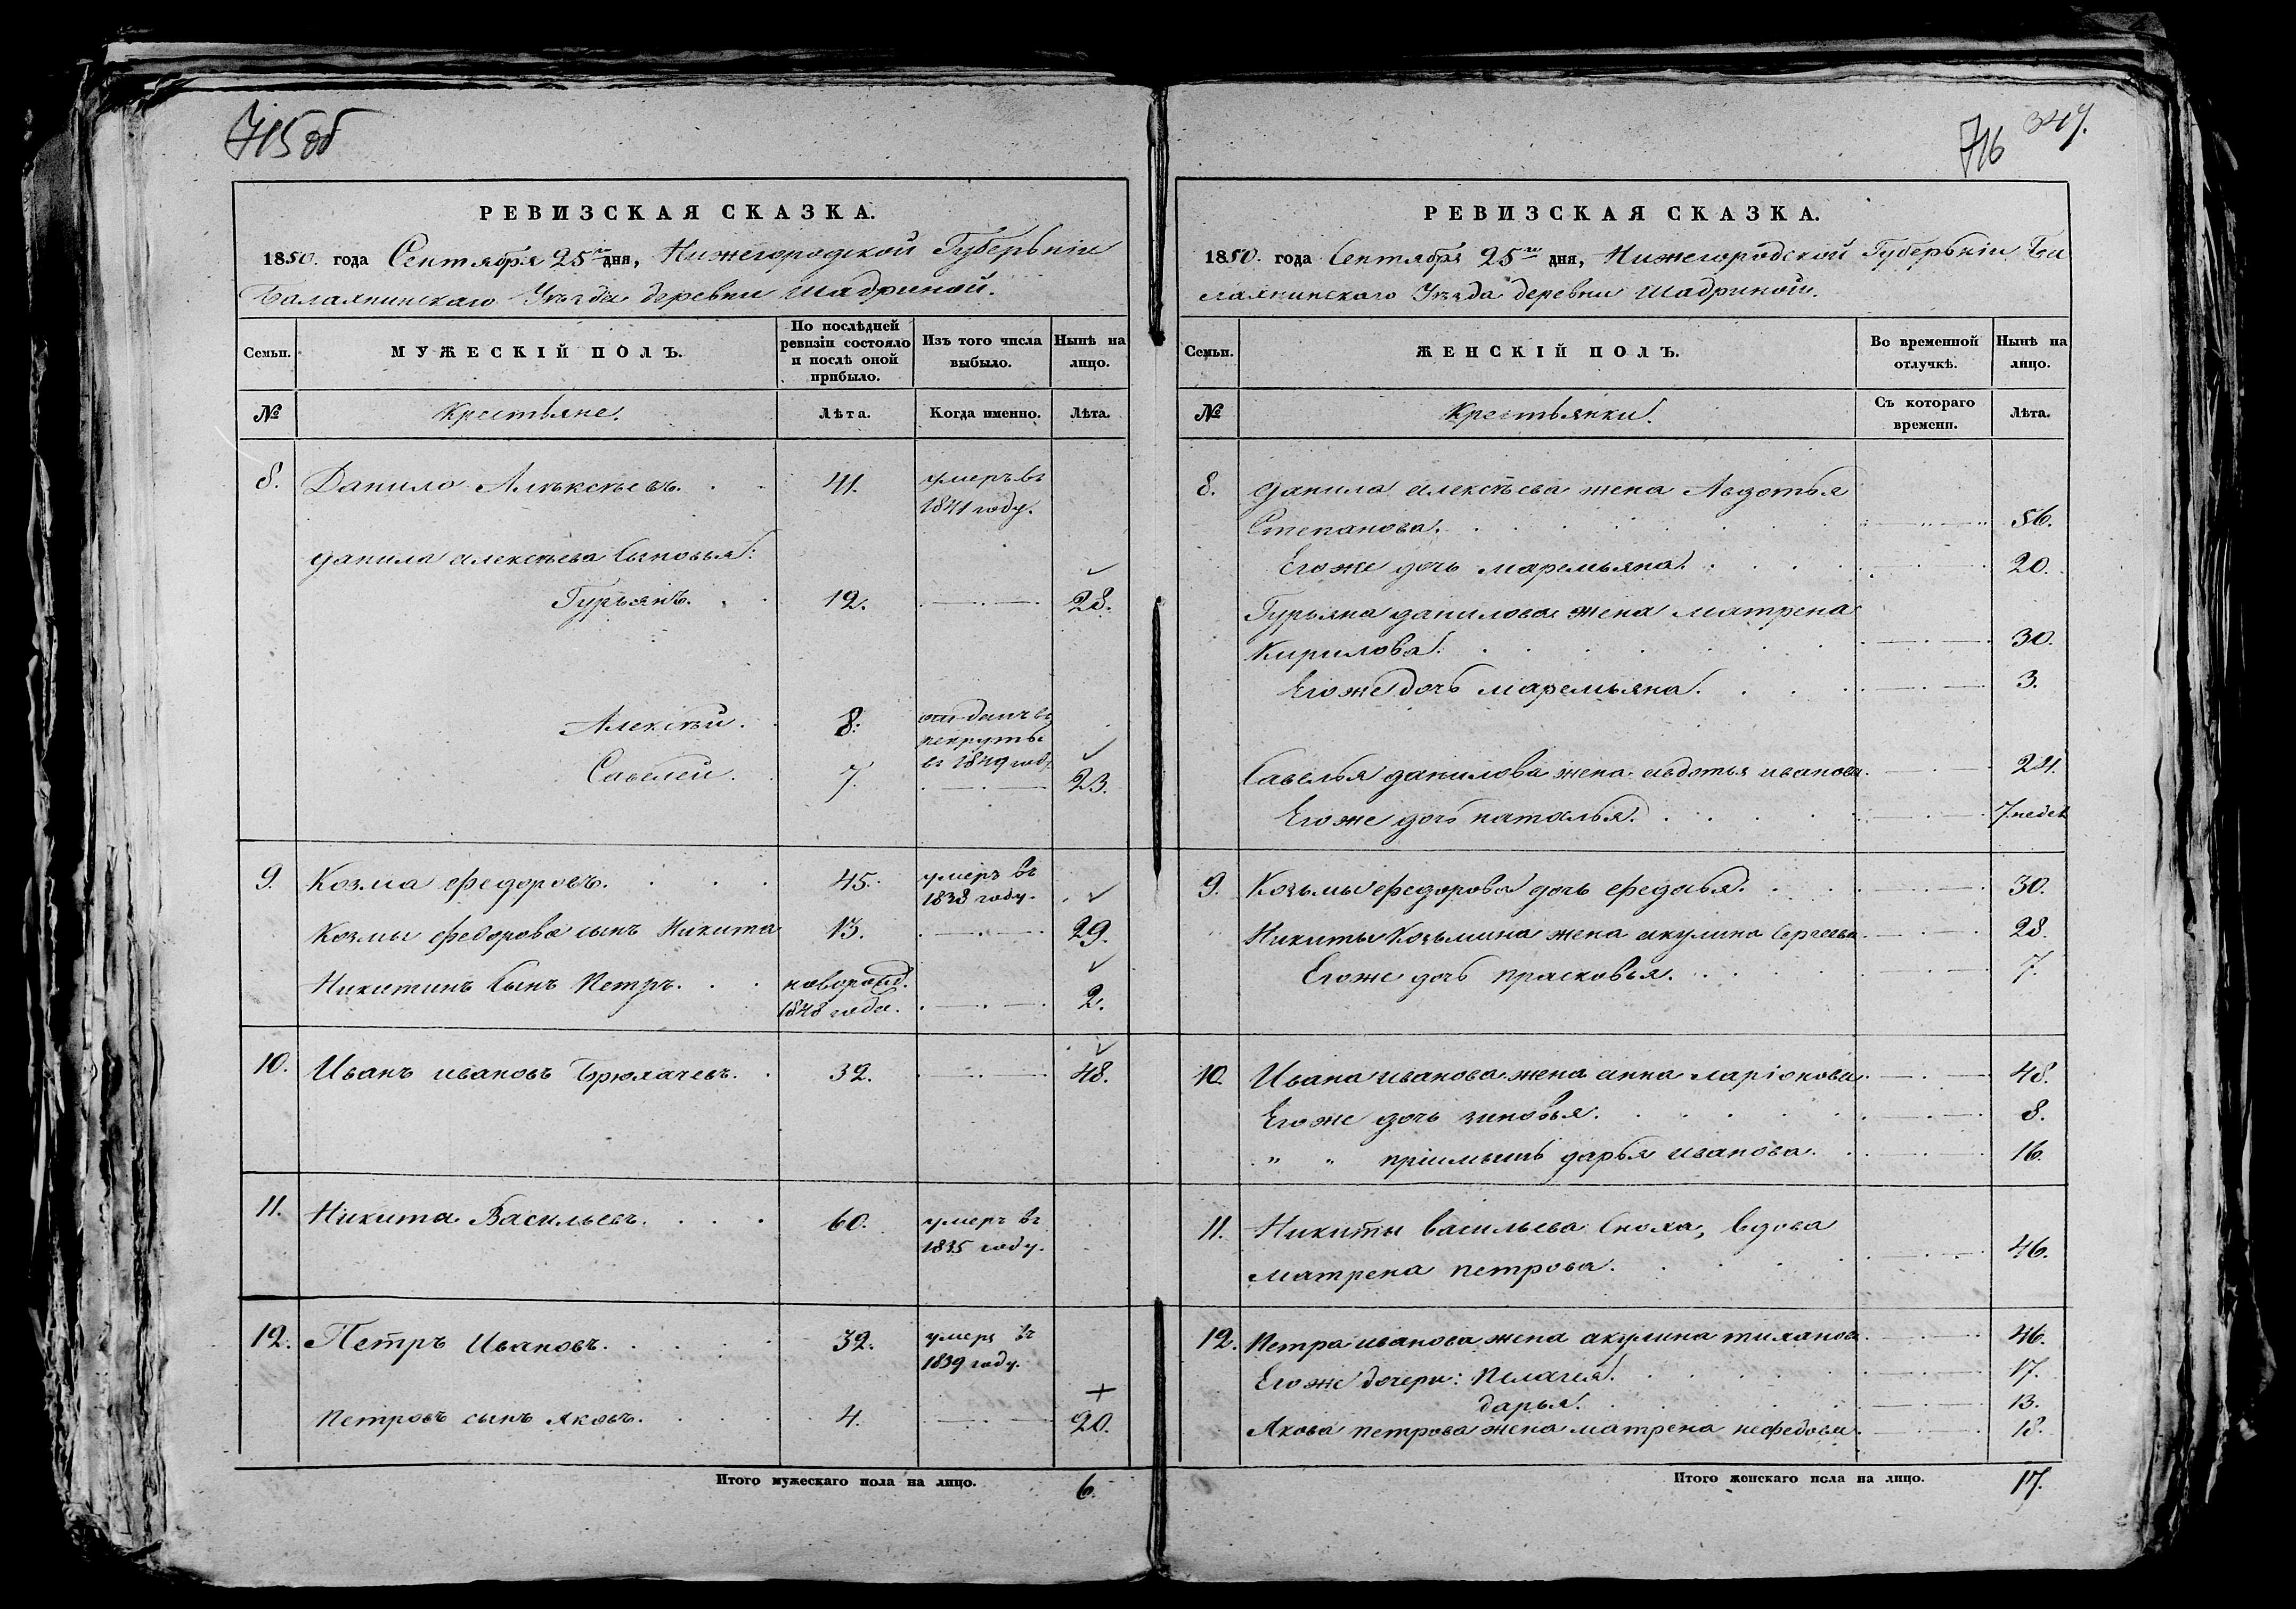 715 об
РЕВИЗСКАЯ СКАЗКА.
1850. года Сентября 25го дня, Нижегородской Губерьніи
Балахнинскаго Уѣзда деревни Шадриной.
Семьи.
МУЖЕСКІЙ ПОЛЪ.
По послѣдней ревизіи состояло и послѣ оной прибыло.
Изъ того числа выбыло.
Нынѣ на лицо.
№
Крестьяне.
Лѣта.
Когда именно.
Лѣта.
8. Данило Алѣксѣевъ. 41. умеръ въ
1841 году.
Данила алексѣева Сыновья:
Гурьянъ. 12. 28.
Алексѣй. 8. отданъ въ
рекруты
въ 1849 году
Савелей. 7. 23.
9. Козма федоровъ. 45. умеръ въ
1838 году.
Козмы федорова сынъ Никита 13. 29.
Никитинъ Сынъ Петръ. неворожд. 2.
1848 года.
10. Иванъ ивановъ Брюхачевъ. 32. 48.
11. Никита Васильевъ. 60. умеръ въ
1835 году.
12. Петръ Ивановъ. 32. умеръ въ
1839 году.
+
Петровъ сынъ яковъ. 4. 20.
Итого мужескаго пола на лицо. 6.
716 347.
РЕВИЗСКАЯ СКАЗКА.
1850. года Сентября 25го дня, Нижегородской Губерьніи Ба
лахнинскаго Уѣзда деревни Шадриной.
Семьи.
ЖЕНСКІЙ ПОЛЪ.
Во временной отлучкѣ.
Нынѣ на лицо.
№
Крестьянки.
Съ котораго времени.
Лѣта.
8. Данила алексѣева жена Авдотья
Степанова. 56.
Его же дочь маремьяна. 20.
Гурьяна данилова жена матрена
Кирилова. 30.
Его же дочь маремьяна. 3.
Савелья данилова жена авдотья иванова. 24.
Его же дочь наталья. 7 недел
9. Козьмы федорова дочь федосья. 30.
Никиты Козьмина жена акулина Сергеева 28.
Его же дочь прасковья. 7.
10. Ивана иванова жена анна ларіонова 48.
Его же дочь зиновья. 8.
" " пріимышь дарья иванова. 16.
11. Никиты васильева Сноха, вдова
матрена петрова. 46.
12. Петра иванова жена акулина тиханова 46.
Его же дочери: Пелагея. 17.
дарья. 13.
Якова петрова жена матрена нефедова. 18.
Итого женскаго пола на лицо. 17.